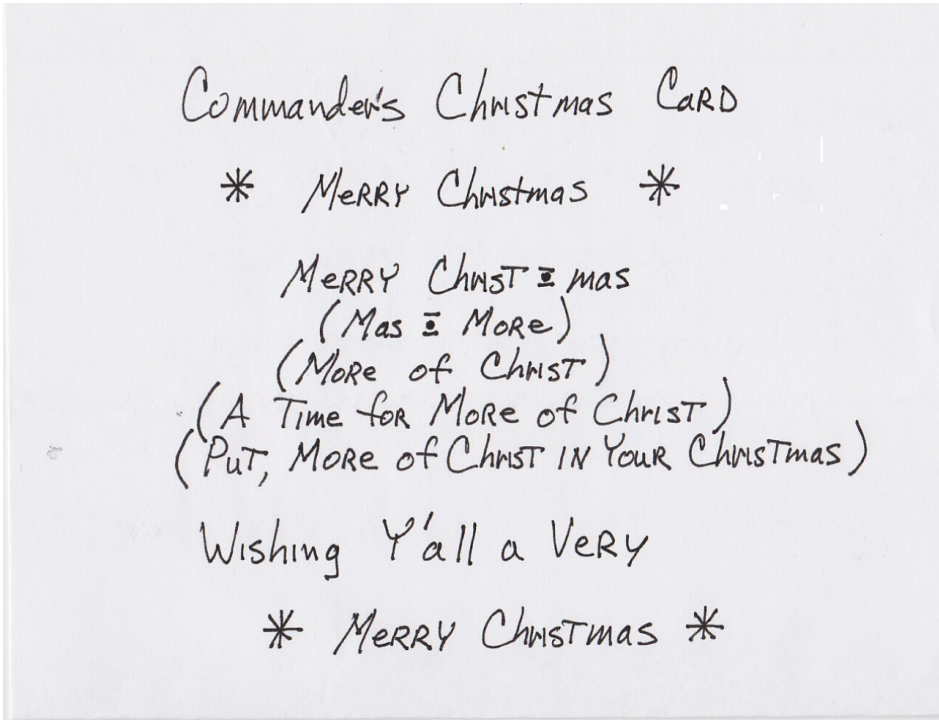 Commander's Christmas Card
* Merry Christmas *
Merry Christ = mas
(Mas = More)
(More of Christ)
(A Time for More of Christ)
(Put, More of Christ in Your Christmas)
Wishing Y'all a Very
* Merry Christmas *